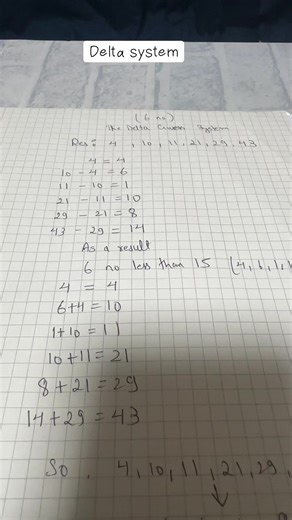 Delta system
(6 no)
The Delta System
Res: 4, 10, 11, 21, 29, 43
4 = 4
10 - 4 = 6
11 - 10 = 1
21 - 11 = 10
29 - 21 = 8
43 - 29 = 14
As a result
6 no less than 15 (4, 6, 1, 1
4 = 4
6+4 = 10
1+10 = 11
10+11 = 21
8+21 = 29
14+29 = 43
So, 4, 10, 11, 21, 29,